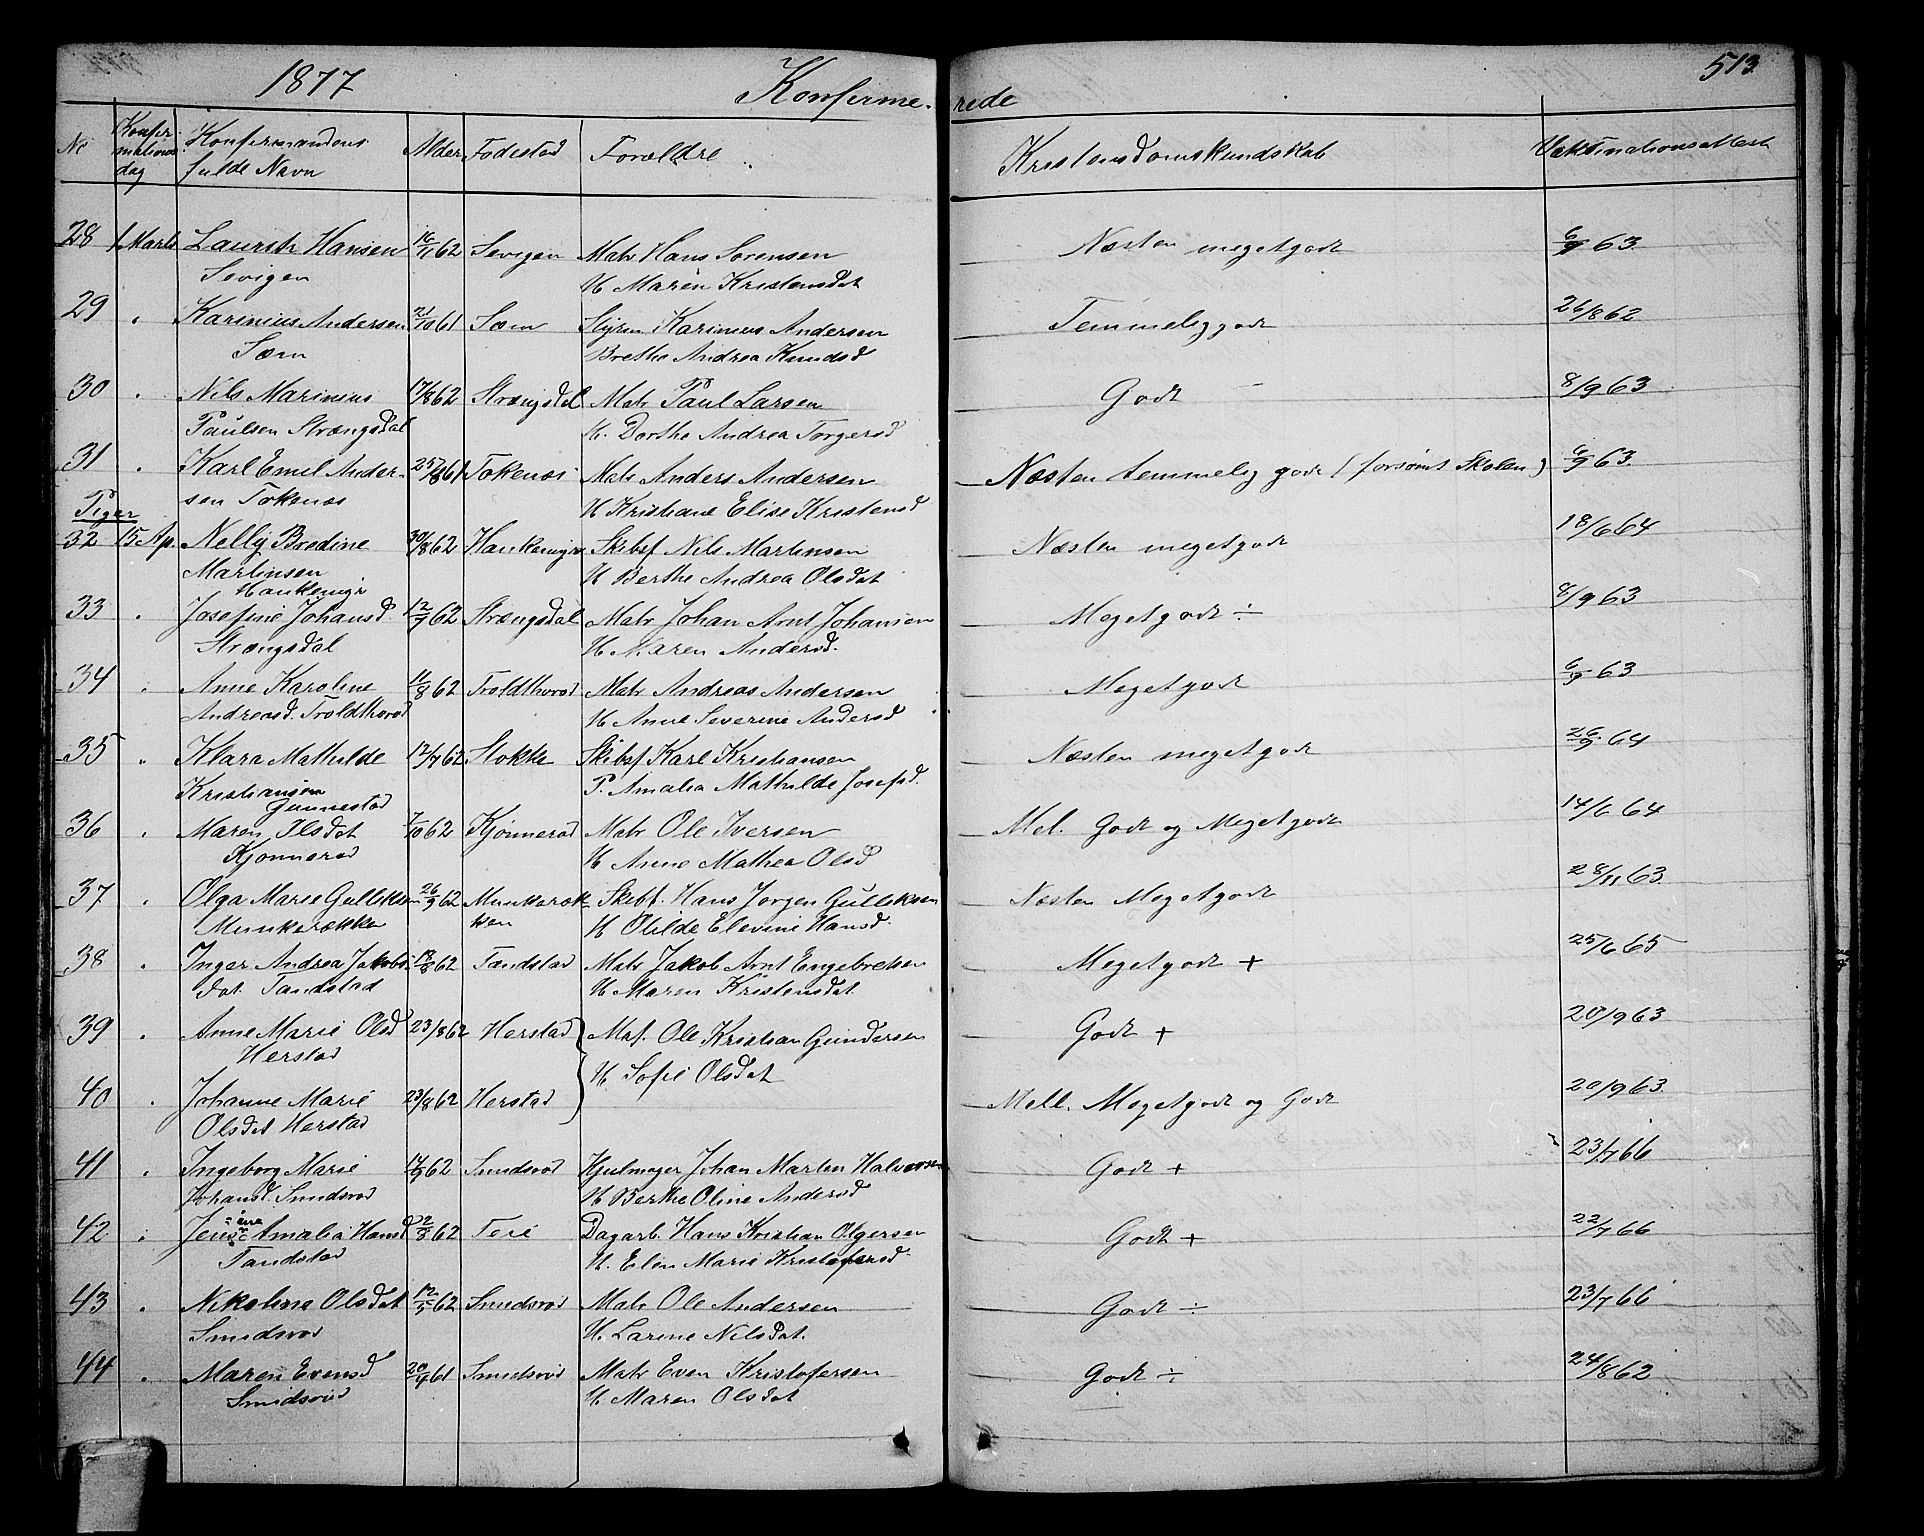 1877 Konfirme- rede 513
No Konfirmationsdag Konfirmandens fulde Navn Alder Fødested Forældre Kristendomskundskab Vaksinationsattest
28 1 Marts Laurits Hansen 16/11 62 Sevigen Matr Hans Sørensen Næsten meget godt 6/9 63.
Sevigen H Maren Kristensdat
29 " Karinius Andersen 21/10 61 Søem Styrm Karinius Andersen Temmelig godt 26/8 62
Søem Brethe Andrea Knudsd
30 " Nils Marinius 17/8 62 Strængsdal Matr Paul Larsen Godt 8/9 63.
Paulsen Strængsdal H. Dorthe Andrea Torgersd
31 " Karl Emil Ander- 25/8 61 Tokenæs Matr Anders Andersen Næsten temmelig godt (forsømt Skolen) 6/9 63.
sen Tokenæs H Kristiane Elise Kristensd
Piger
32 15 Ap. Nelly Bredine 30/8 62 Skibsf Nils Martinsen Næsten meget godt 18/6 64
Martinsen H Berthe Andrea Olsdat
33 " Josefine Johansd 12/7 62 Strængsdal Matr Johan Arnt Johansen Meget godt ÷ 8/9 63
Strængsdal H Maren Andersd.
34 " Anne Karoline 11/8 62 Troldthorod Matr Andreas Andersen Meget godt 6/9 63
Andreasd. Troldthorod H Anne Severine Andersd
35 " Klara Mathilde 12/7 62 Stokke Skibsf Karl Kristiansen Næsten meget godt 26/9 64
Kristiansen P. Amalia Mathilde Josefsd.
Gunnestad
36 " Maren Olsdat 7/10 62 Kjønnerød Matr Ole Iversen Mel. Godt og Meget godt 14/6 64
Kjønnerød H Anne Mathea Olsd
37 " Olga Marie Gulliksen 26/9 62 Munkeræk- Skibt. Hans Jørgen Gulliksen Næsten Meget godt 28/11 63.
Munkerækka ken H Otilde Elevine Hansd.
38 " Inger Andrea Jakobs- 18/8 62 Tandstad Matr Jakob Arnt Engebretsen Meget godt + 25/6 65
dat. Tandstad H Maren Kristensdat.
39 " Anne Marie Olsd 23/8 62 Herstad Mat. Ole Kristian Gundersen Godt + 20/9 63
Herstad H Sofie Olsdat
40 " Johanne Marie 23/8 62 Herstad Mell. Meget godt og Godt 20/9 63.
Olsdat Herstad
41 " Ingeborg Marie 14/9 62 Smidsrod Hjulmager Johan Martin Halvorsen Godt + 23/7 66
Johansd. Smidsrod H Berthe Oline Andersd
42 " Jensine Amalia Hansd 2/3 62 Teie Dagarb. Hans Kristian Olgersen Godt + 22/7 66
Tandstad H. Elen Marie Kristofersd.
43 " Nikoline Olsdat 12/5 62 Smidsrod Matr Ole Andersen Godt ÷ 23/7 66
Smidsrod H. Larine Nilsdat.
44 " Maren Evensd 20/9 61 Smidsrod Matr Even Kristofersen Godt ÷ 24/8 62
Smidsrod H. Maren Olsdat